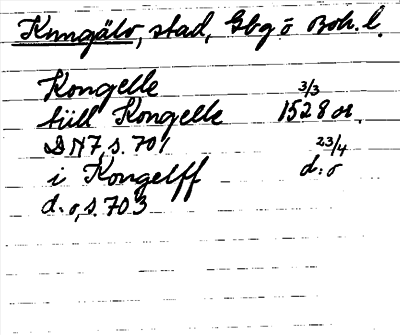 Kungälv, stad, Gbg o Boh. l.
Kongelle 3/3
till Kongelle 1528 or.
DN7, s. 701
i Kongelff 23/4 d:o
d:o, s. 703